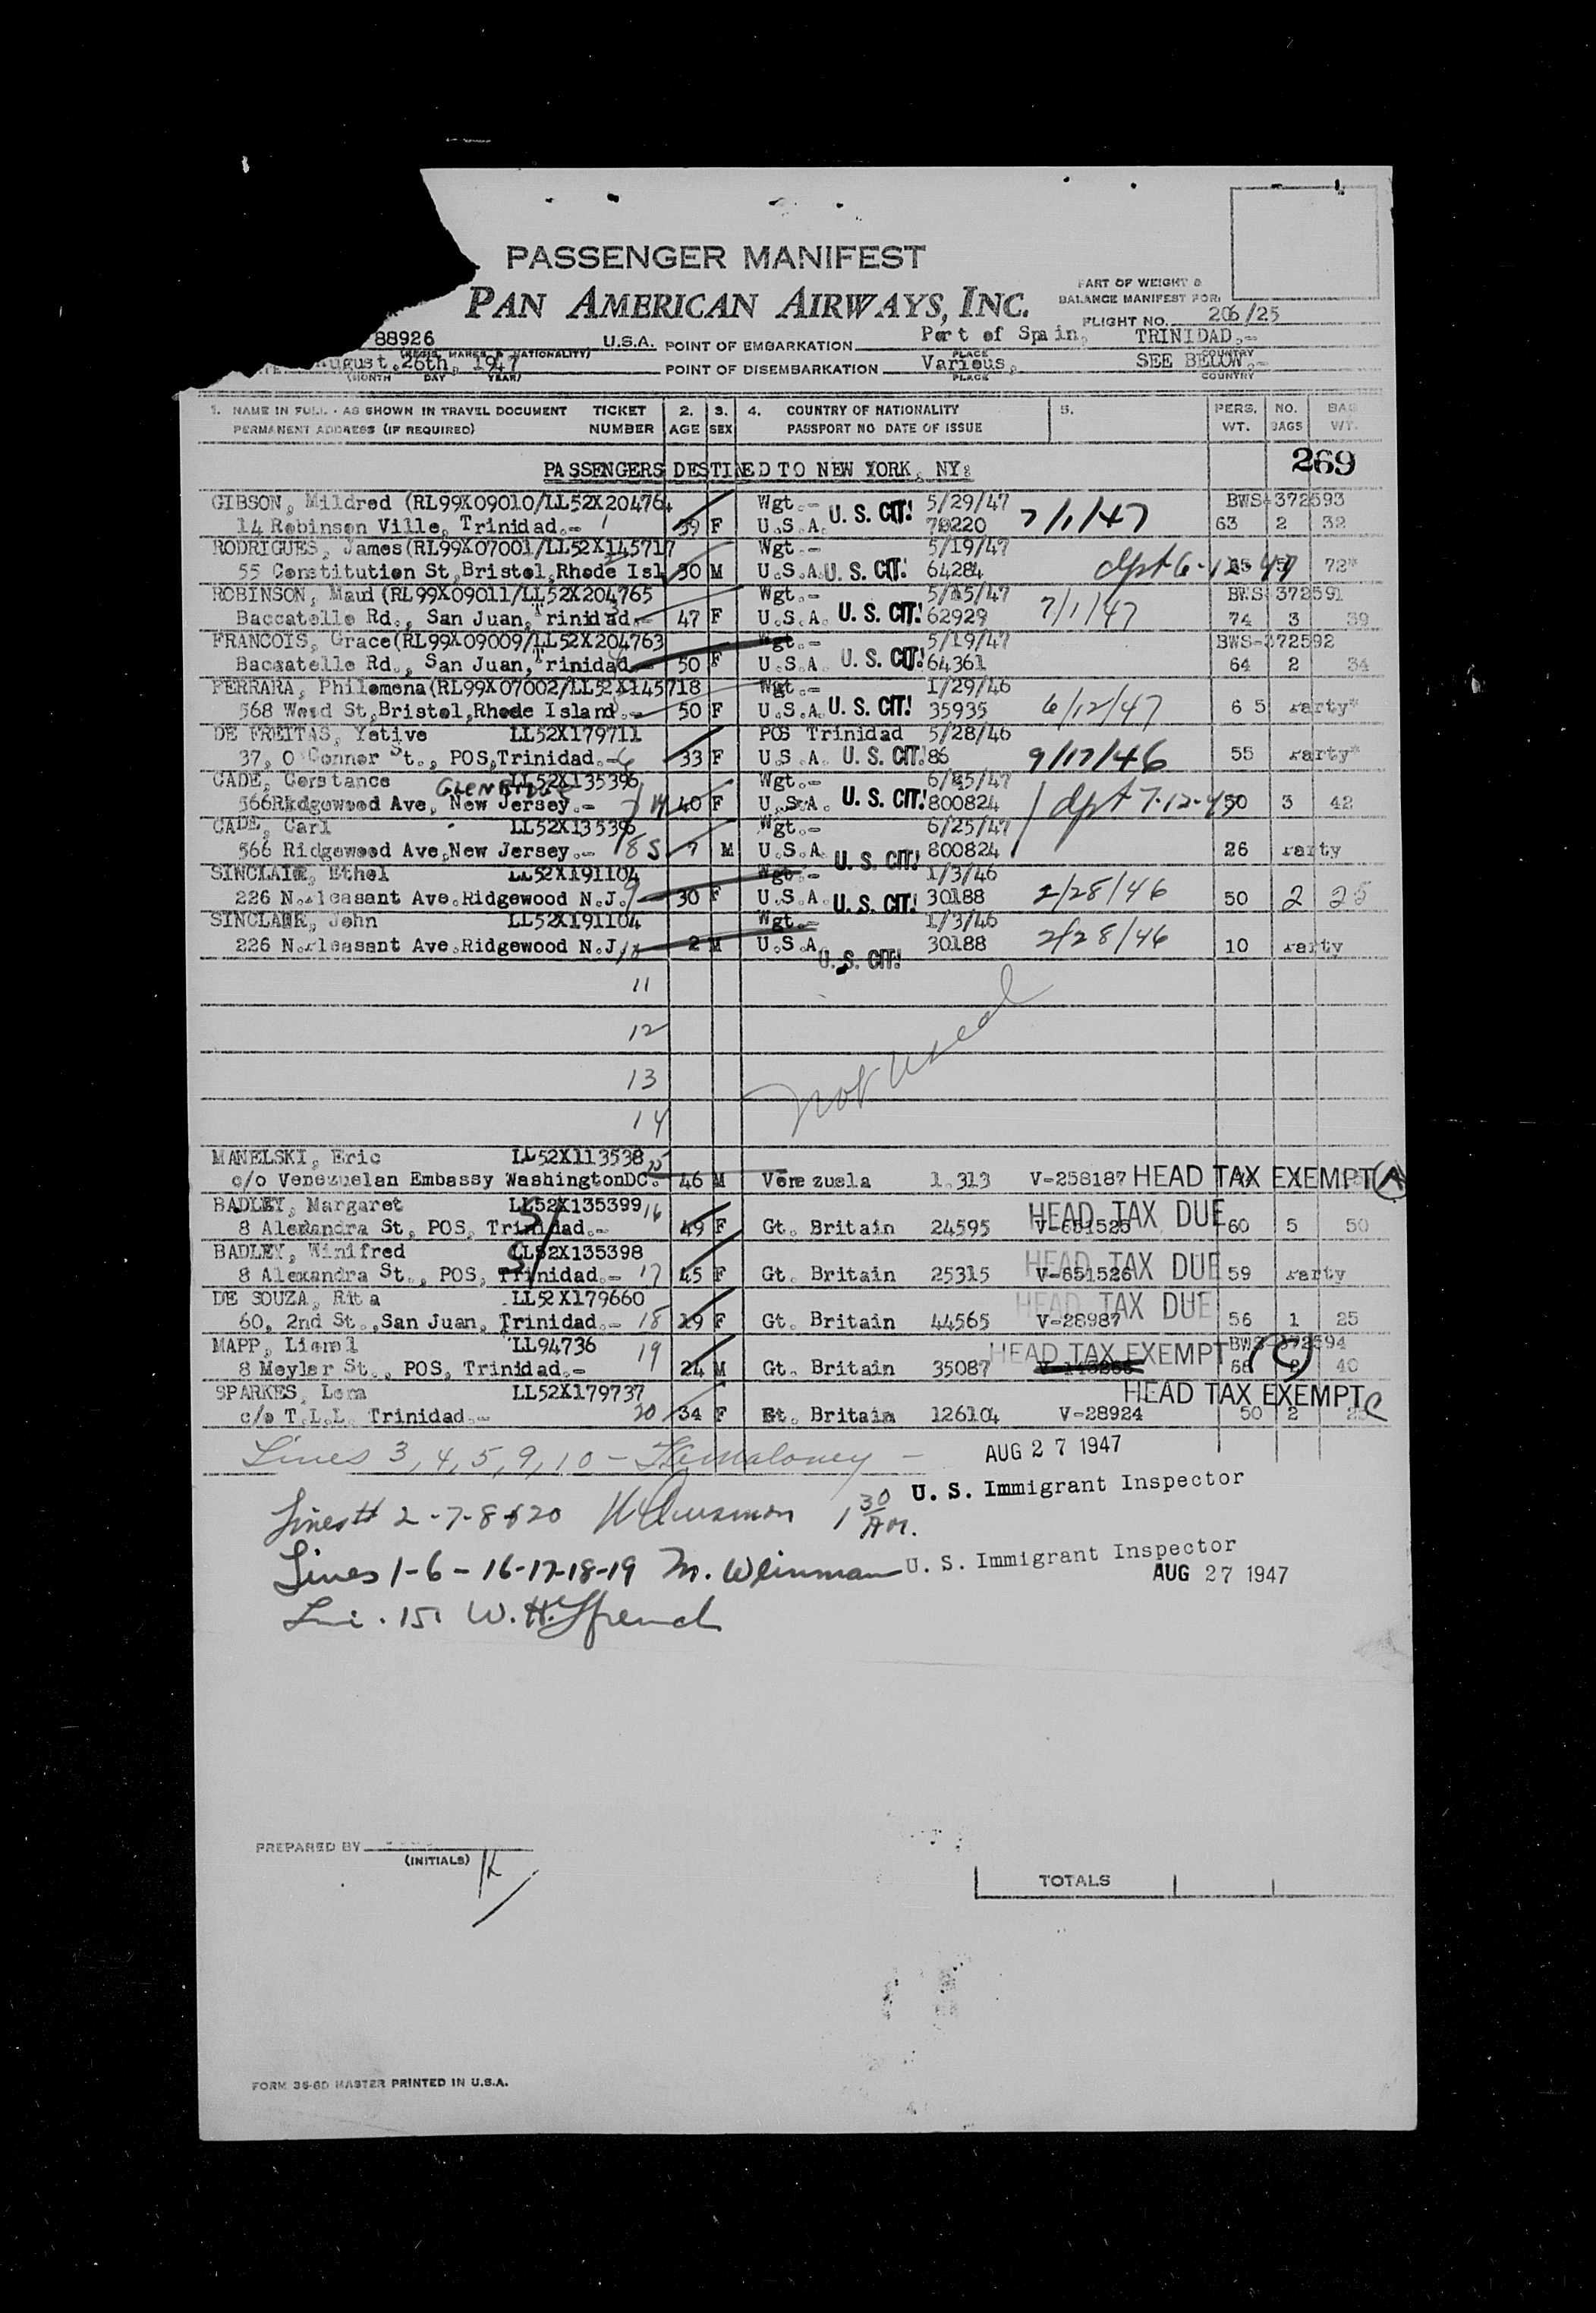 PASSENGER MANIFEST
PAN AMERICAN AIRWAYS, INC.
PART OF WEIGHT &
BALANCE MANIFEST FOR:
FLIGHT NO. 206/25
88926 U.S.A. POINT OF EMBARKATION Port of Spain, TRINIDAD.-
(REGIS. MARKS & NATIONALITY) PLACE COUNTRY
August.26th, 1947 POINT OF DISEMBARKATION Various, SEE BELOW.-
(MONTH DAY YEAR) PLACE COUNTRY
1. NAME IN FULL - AS SHOWN IN TRAVEL DOCUMENT TICKET 2. 3. 4. COUNTRY OF NATIONALITY 5. PERS. NO. BAG
PERMANENT ADDRESS (IF REQUIRED) NUMBER AGE SEX PASSPORT NO DATE OF ISSUE WT. BAGS WT.
PASSENGERS DESTINED TO NEW YORK, NY: 269
GIBSON, Mildred (RL99X09010/LL52X204764 Wgt.- 5/29/47 BWS-372593
14 Robinson Ville, Trinidad.- 1 39 F U.S.A. U. S. CIT! 70220 7/1/47 63 2 32
RODRIGUES, James(RL99X07001/LL52X145717 Wgt.- 5/19/47
55 Constitution St,Bristol,Rhode Isl 30 M U.S.A. U. S. CIT! 64284 dpt 6-12-47 72*
ROBINSON, Maud (RL99X09011/LL52X204765 Wgt.- 5/15/47 BWS-372591
Baccatelle Rd., San Juan, Trinidad.- 47 F U.S.A. U. S. CIT! 62929 7/1/47 74 3 39
FRANCOIS, Grace(RL99X09009/LL52X204763 Wgt.- 5/19/47 BWS-372592
Baccatelle Rd., San Juan, Trinidad.- 50 F U.S.A. U. S. CIT! 64361 64 2 34
FERRARA, Philomena(RL99X07002/LL52X145718 Wgt.- 1/29/46
568 Wood St,Bristol,Rhode Island.- 50 F U.S.A. U. S. CIT! 35935 6/12/47 6 5 Party*
DE FREITAS, Yvtive LL52X179711 POS Trinidad 5/28/46
37, O Conner St., POS,Trinidad.- 6 33 F U.S.A. U. S. CIT! 86 9/17/46 55 Party*
CADE, Constance LL52X135396 Wgt.- 6/25/47
GLEN RIDGE
566Ridgewood Ave, New Jersey.- 7 40 F U.S.A. U. S. CIT! 800824 dpt 7-12-45 50 3 42
CADE, Carl LL52X135396 Wgt.- 6/25/47
566 Ridgewood Ave,New Jersey.- 8 S 7 M U.S.A. U. S. CIT! 800824 26 Party
SINCLAIR, Ethel LL52X191104 Wgt.- 1/3/46
226 N.Pleasant Ave.Ridgewood N.J. 9 30 F U.S.A. U. S. CIT! 30188 2/28/46 50 2 25
SINCLAIR, John LL52X191104 Wgt.- 1/3/46
226 N.Pleasant Ave.Ridgewood N.J. 10 2 M U.S.A. U. S. CIT! 30188 2/28/46 10 Party
11
12
13
14
not used
MANELSKI, Eric LL52X113538 15
c/o Venezuelan Embassy WashingtonDC. 46 M Venezuela 1,313 V-258187 HEAD TAX EXEMPT A
BADLEY, Margaret LL52X135399 16
8 Alexandra St, POS, Trinidad.- 49 F Gt. Britain 24595 V-651525 HEAD TAX DUE 60 5 50
BADLEY, Winifred LL52X135398
8 Alexandra St., POS, Trinidad.- 17 45 F Gt. Britain 25315 V-651526 HEAD TAX DUE 59 Party
DE SOUZA, Rita LL52X179660
60, 2nd St.,San Juan, Trinidad.- 18 19 F Gt. Britain 44565 V-28987 HEAD TAX DUE 56 1 25
MAPP, Lionel LL94736 BWS-372594
8 Meyler St., POS, Trinidad.- 19 24 M Gt. Britain 35087 HEAD TAX EXEMPT 66 2 40
SPARKES, Lena LL52X179737
c/o T.L.L. Trinidad.- 20 34 F Gt. Britain 126104 V-28924 HEAD TAX EXEMPT C 50 2
Lines 3, 4, 5, 9, 10 - Maloney - AUG 27 1947
U. S. Immigrant Inspector
Lines # 2-7-8 & 20 1 30 AM.
Lines 1-6-16-17-18-19 M. Weinman U. S. Immigrant Inspector
AUG 27 1947
Line. 15 W. H. French
PREPARED BY
(INITIALS)
TOTALS
FORM 36-8D MASTER PRINTED IN U.S.A.